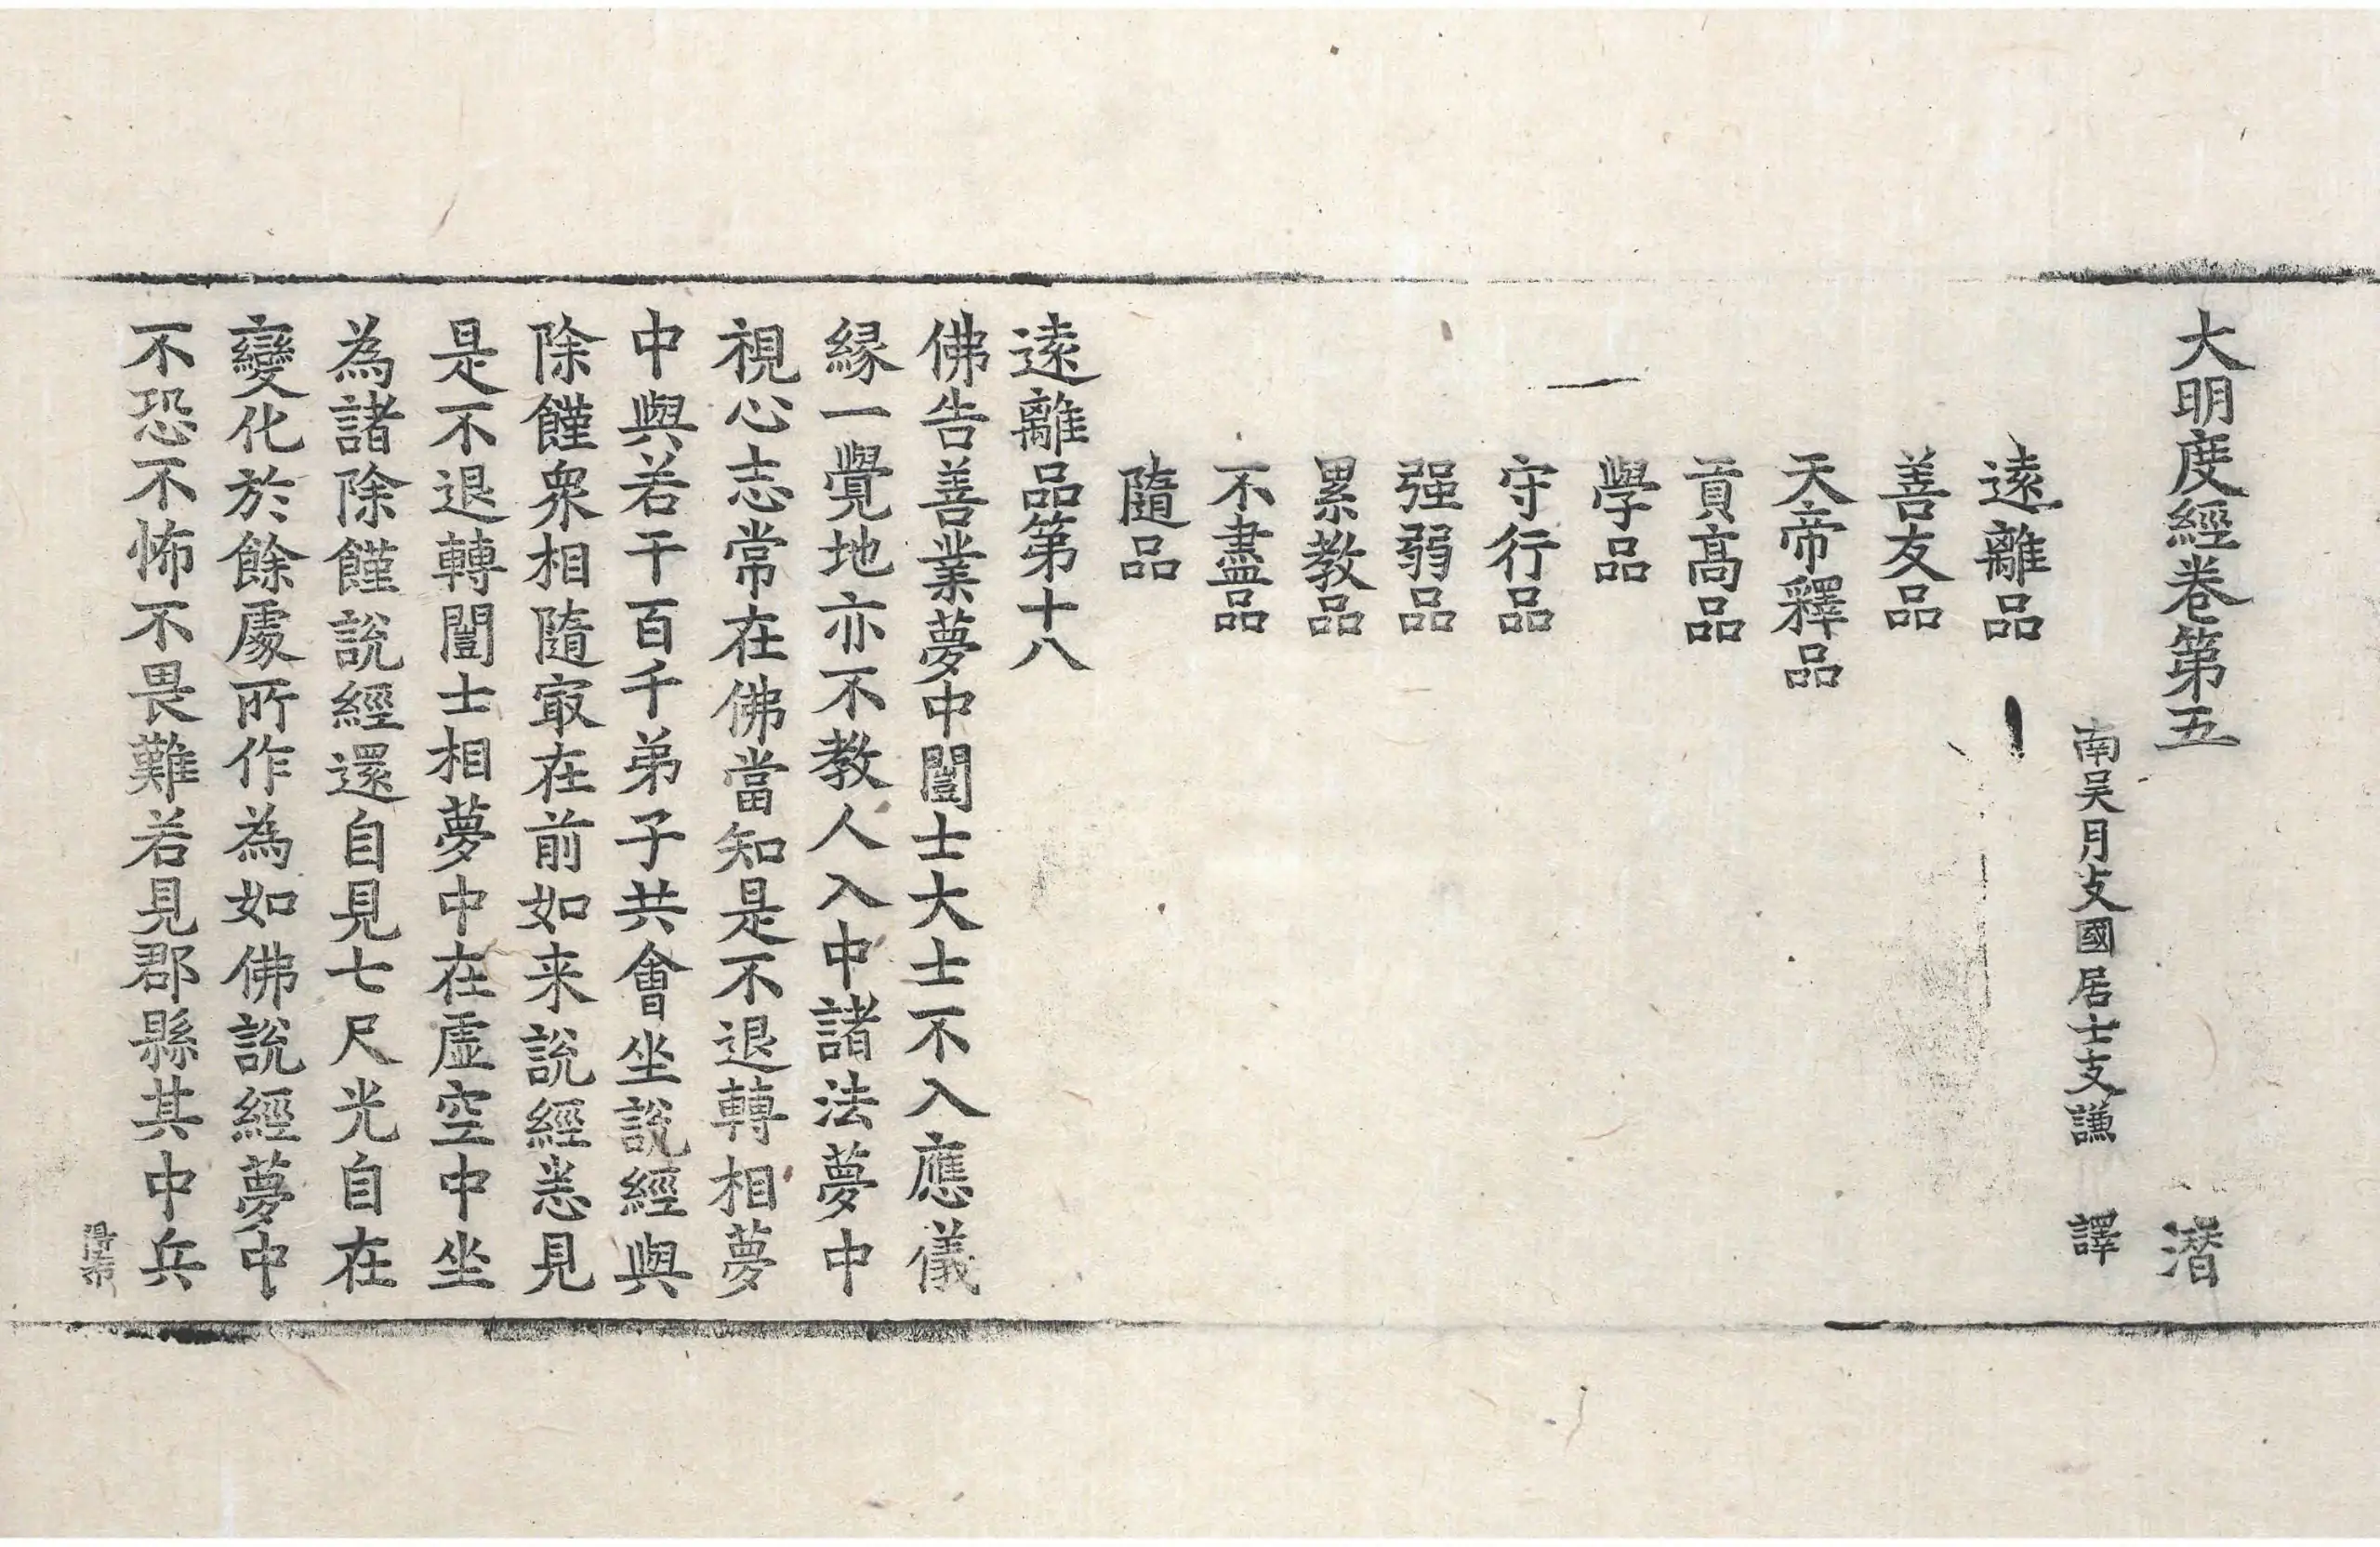 大明度經卷第五　潛
南吴月支國居士支謙　譯
遠離品
善友品
天帝釋品
貢髙品
學品
守行品
强弱品
累教品
不盡品
隨品
遠離品第十八
佛告善業夢中闓士大士不入應儀
縁一覺地亦不教人入中諸法夢中
視心志常在佛當知是不退轉相夢
中與若干百千弟子共會坐說經與
除饉衆相隨㝡在前如来說經悉見
是不退轉闓士相夢中在虛空中坐
為諸除饉說經還自見七尺光自在
變化於餘處所作為如佛說經夢中
不恐不怖不畏難若見郡縣其中兵